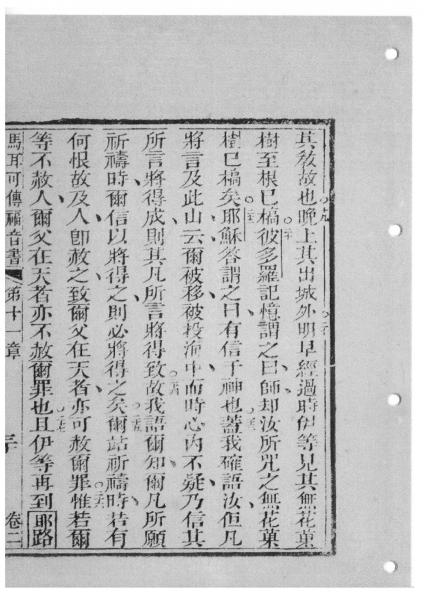 其敎故也晚上其出城外明早經過時伊等見其無花菓
樹至根已槁彼多羅記憶謂之曰師却汝所咒之無花菓
樹已槁矣耶穌答謂之曰有信于神也蓋我確語汝但凡
將言及此山云爾被移被投海中而時心內不疑乃信其
所言將得成則其凡所言將得致故我語爾知爾凡所願
祈禱時爾信以將得之則必將得之矣爾站祈禱時若有
何恨故及人卽赦之致爾父在天者亦可赦爾罪惟若爾
等不赦人爾父在天者亦不赦爾罪也且伊等再到耶路
馬耳可傳福音書 第十一章 卷二